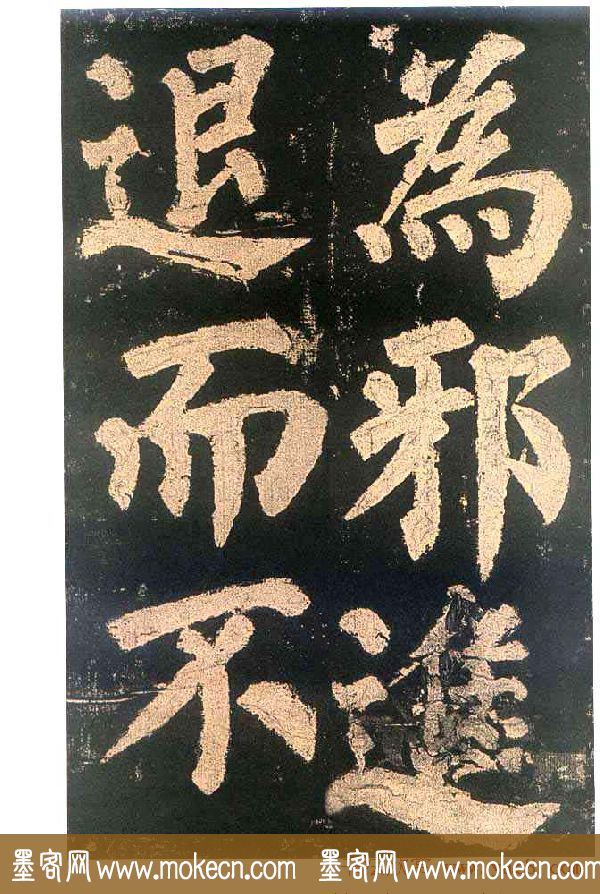 為邪進
退而不
墨客网 www.mokecn.com 墨客网 www.mokecn.com